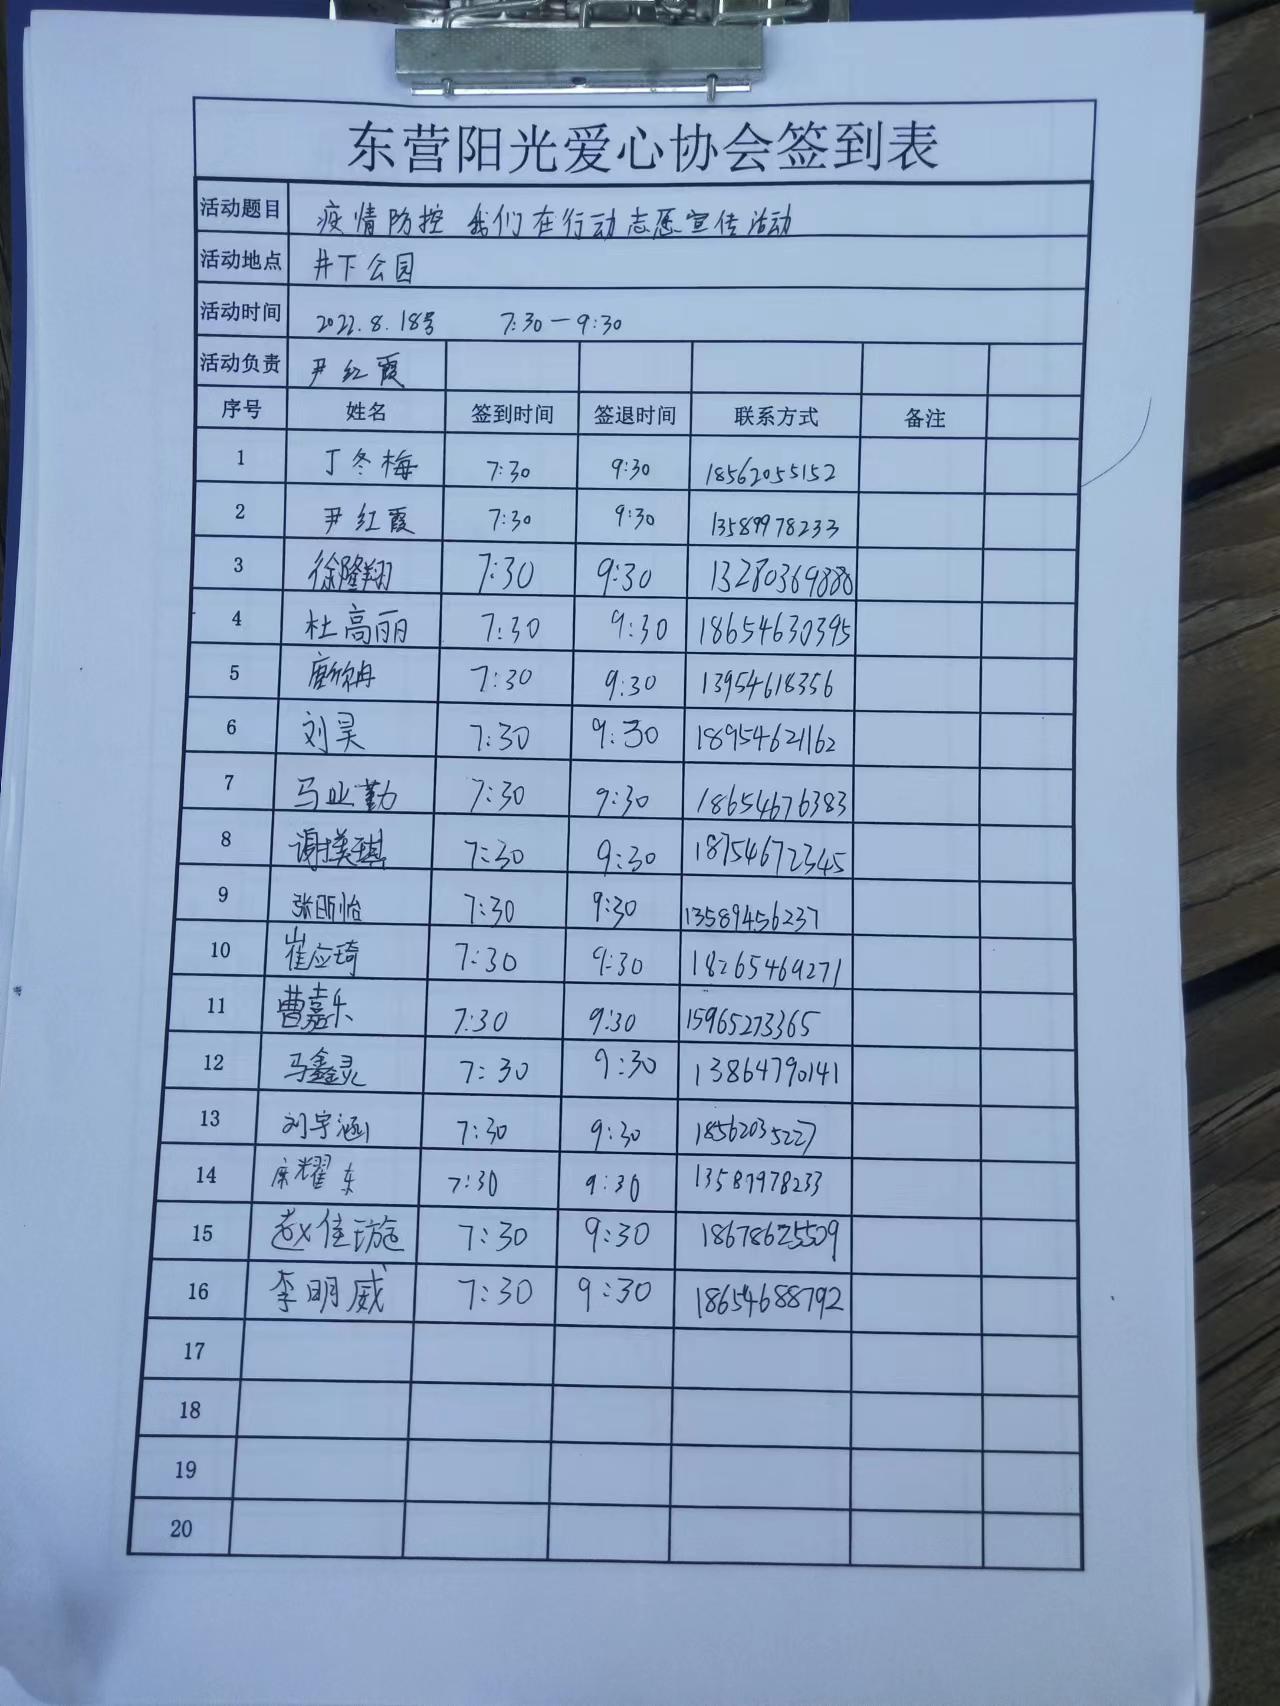 东营阳光爱心协会签到表
活动题目 疫情防控 我们在行动志愿宣传活动
活动地点 井下公园
活动时间 2022.8.18号 7:30—9:30
活动负责 尹红霞
序号 姓名 签到时间 签退时间 联系方式 备注
1 丁冬梅 7:30 9:30 18562055152
2 尹红霞 7:30 9:30 13589978233
3 徐隆翔 7:30 9:30 13280369880
4 杜高丽 7:30 9:30 18654630395
5 7:30 9:30 13954618356
6 刘昊 7:30 9:30 18954621162
7 马业勤 7:30 9:30 18654676383
8 谢瑛琪 7:30 9:30 18754672345
9 张昕怡 7:30 9:30 13589456237
10 崔应琦 7:30 9:30 18265469271
11 曹嘉乐 7:30 9:30 15965273365
12 马鑫灵 7:30 9:30 13864790141
13 刘宇涵 7:30 9:30 18562035227
14 7:30 9:30 13589978233
15 赵佳璇 7:30 9:30 18678625509
16 李明威 7:30 9:30 18654688792
17
18
19
20